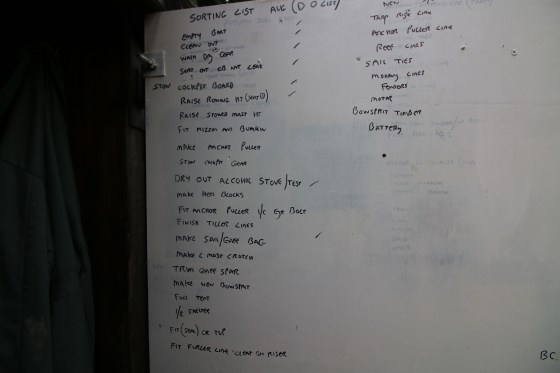 SORTING LIST AUG (D O LIST)
EMPTY BOAT
CLEAN OUT
WASH DAY GEAR
SORT OUT GEAR
STOW COCKPIT BOARD
RAISE ROWING HT
RAISE STOWED MAST HT
FIT MIZZEN AND BUMKIN
MAKE ANCHOR PULLER
STOW GEAR
DRY OUT ALCOHOL STOVE/TEST
MAKE BLOCKS
FIT ANCHOR PULLER I/C EYE BOLT
FINISH TILLER LINES
MAKE SAIL/GAFF BAG
MAKE MAST CRUTCH
TRIM GAFF SPAR
MAKE NEW BOWSPRIT
FULL TEST
FIT (SEW) OR TOP
FIT FURLER LINE CLEAT ON RISER
NEW
TARP RIDGE LINE
ANCHOR PULLER LINE
REEF LINES
SAIL TIES
MOORING LINES
FENDERS
MOTOR
BOWSPRIT TIMBER
BATTERY
BC